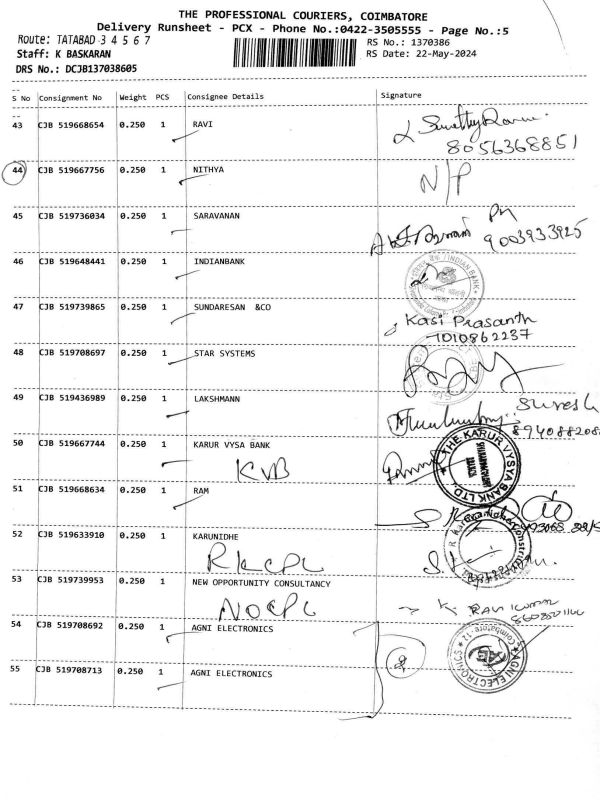 THE PROFESSIONAL COURIERS, COIMBATORE
Delivery Runsheet - PCX - Phone No.:0422-3505555 - Page No.:5
Route: TATABAD 3 4 5 6 7
RS No.: 1370386
Staff: K BASKARAN
RS Date: 22-May-2024
DRS No.: DCJB137038605
S No Consignment No Weight PCS Consignee Details Signature
43 CJB 519668654 0.250 1 RAVI
8056368851
44 CJB 519667756 0.250 1 NITHYA N/P
45 CJB 519736034 0.250 1 SARAVANAN
9003933925
46 CJB 519648441 0.250 1 INDIANBANK
INDIAN BANK
47 CJB 519739865 0.250 1 SUNDARESAN &CO Kasi Prasanth
7010862237
48 CJB 519708697 0.250 1 STAR SYSTEMS
49 CJB 519436989 0.250 1 LAKSHMANN Suresh
894088208
50 CJB 519667744 0.250 1 KARUR VYSA BANK
KVB
THE KARUR VYSYA BANK LTD.
51 CJB 519668634 0.250 1 RAM
52 CJB 519633910 0.250 1 KARUNIDHE
RKCPL
53 CJB 519739953 0.250 1 NEW OPPORTUNITY CONSULTANCY
NOCPL
K. RAVI KUMAR
54 CJB 519708692 0.250 1 AGNI ELECTRONICS
AGNI ELECTRONICS Coimbatore-12
55 CJB 519708713 0.250 1 AGNI ELECTRONICS